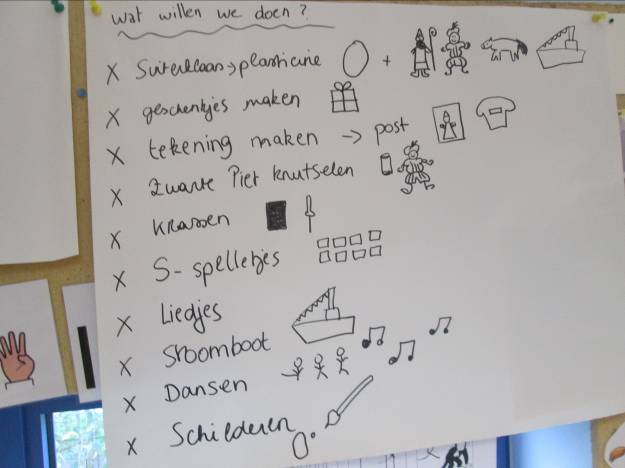 wat willen we doen?
X Sinterklaas → plasticine +
X geschenkjes maken
X tekening maken → post
X Zwarte Piet knutselen
X Krassen
X S-spelletjes
X Liedjes
X Stoomboot
X Dansen
X Schilderen